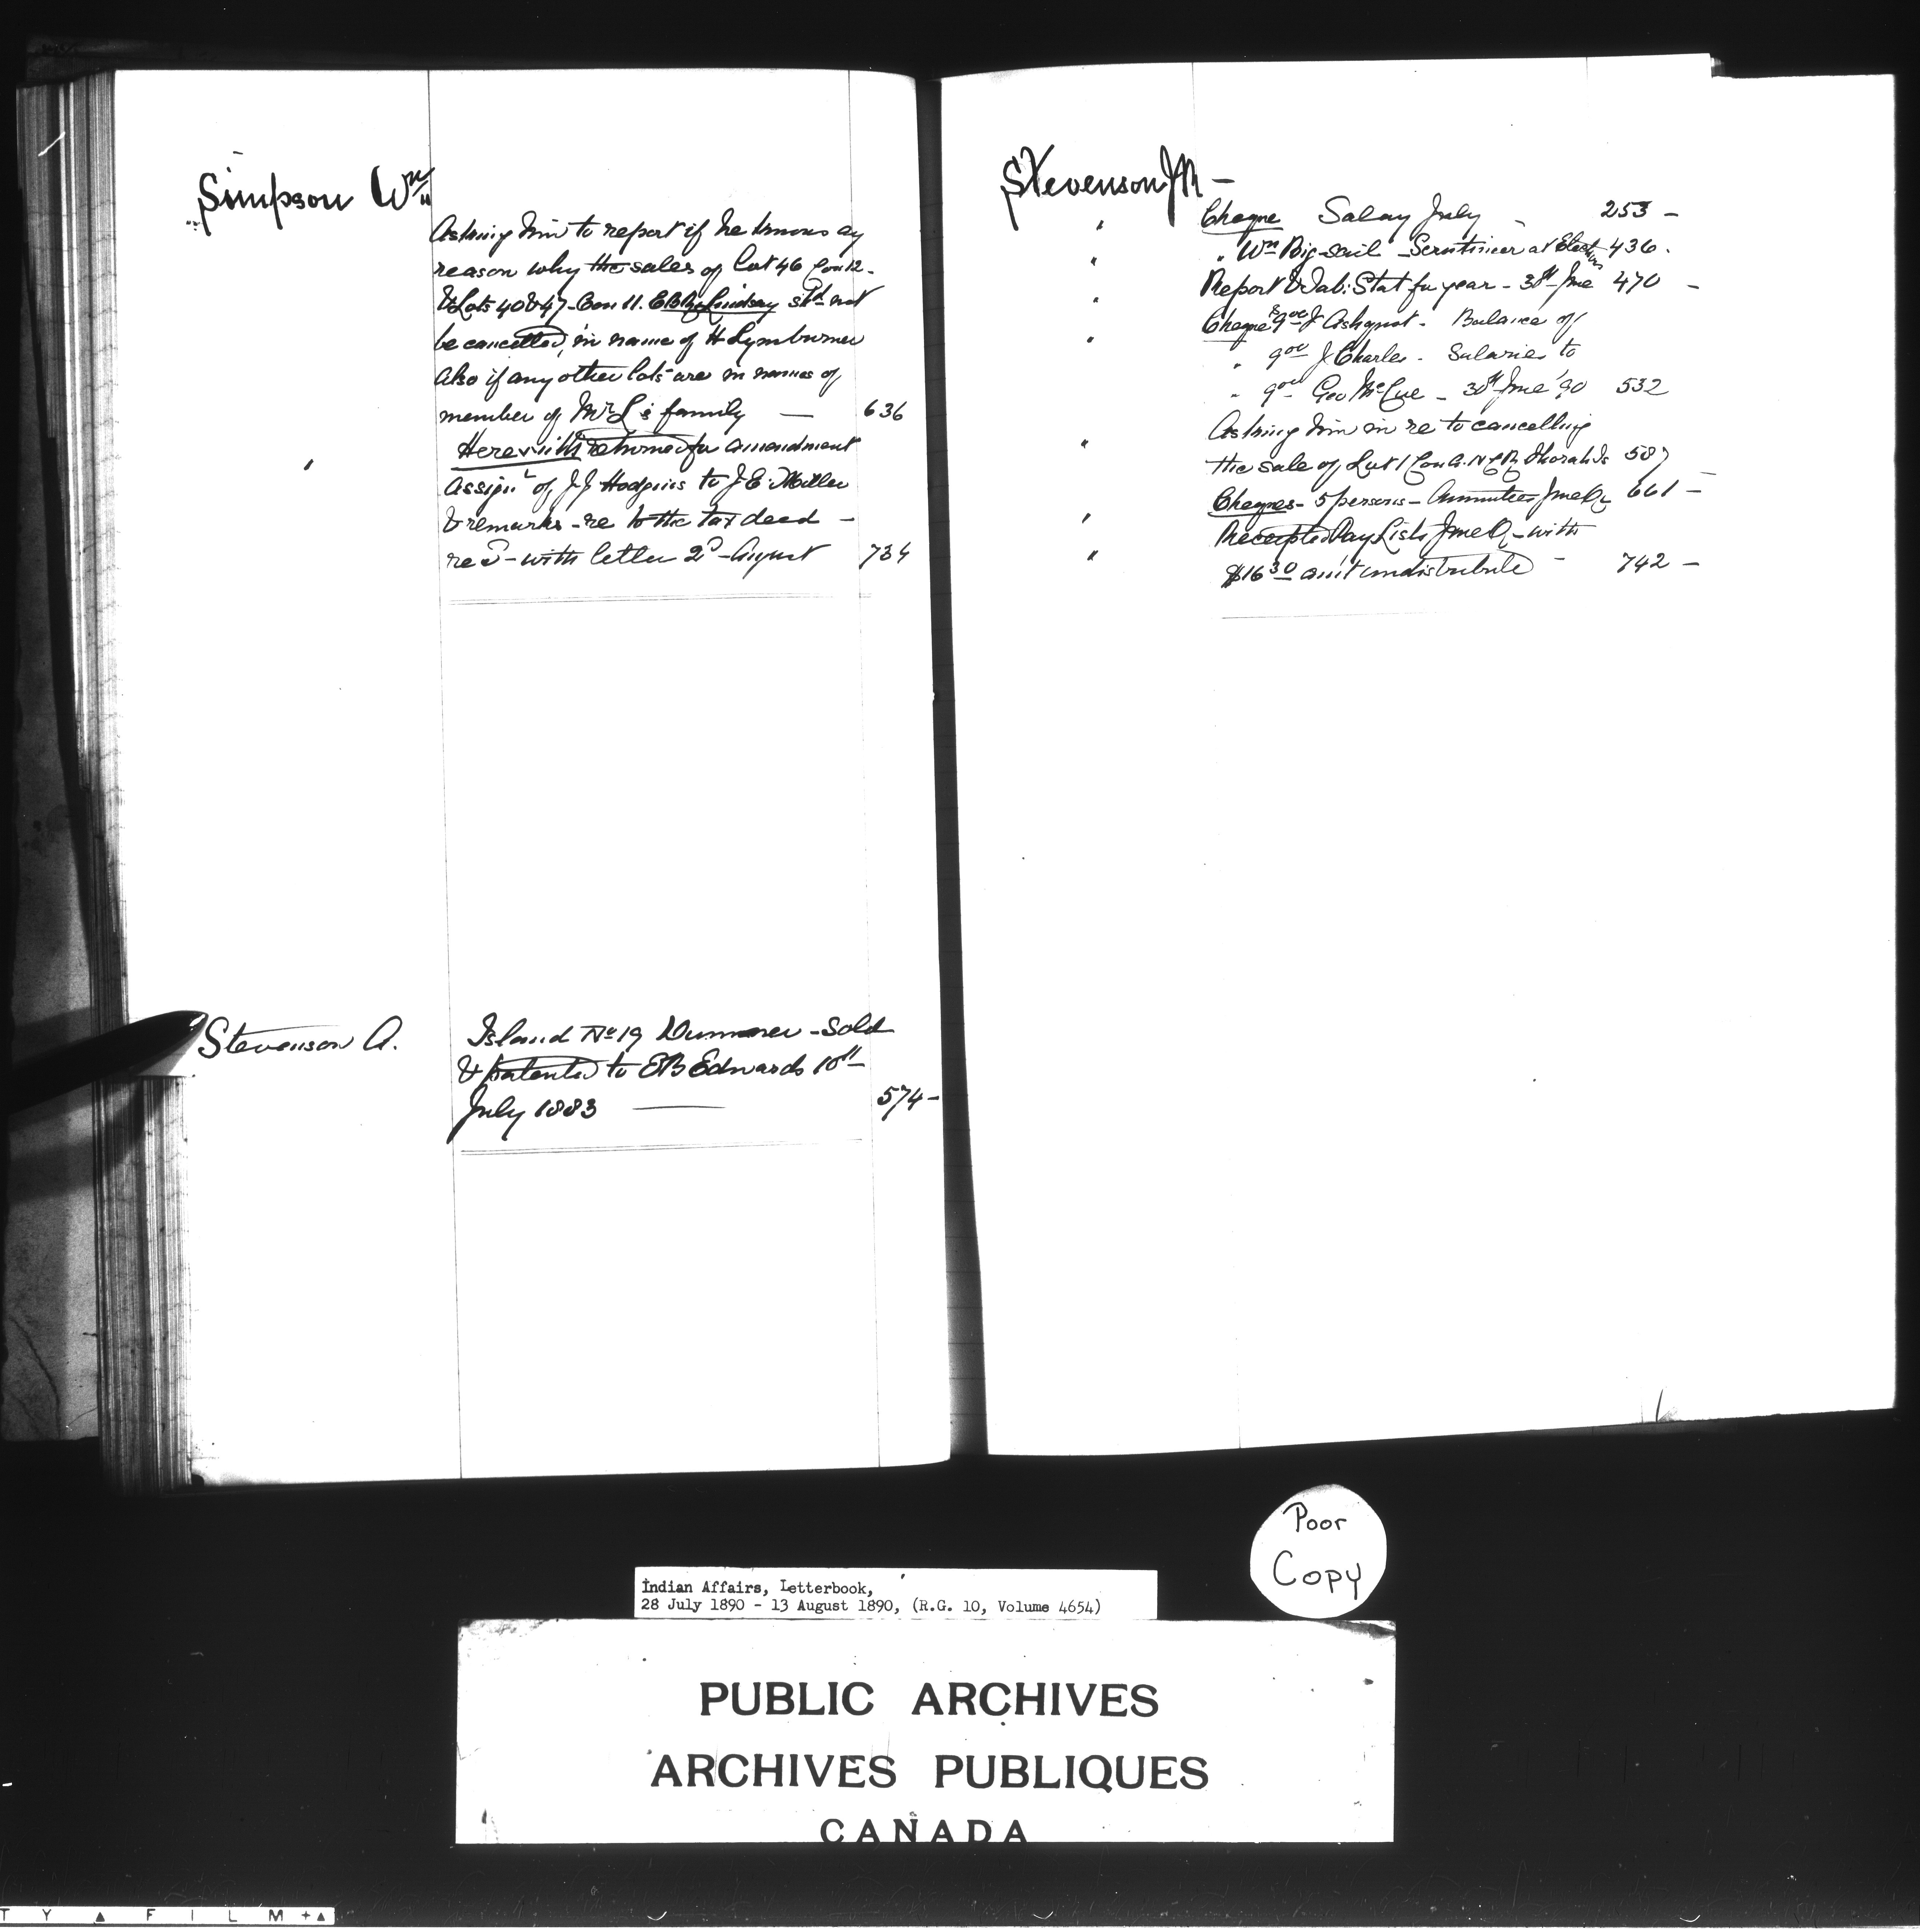 Simpson Wm
Asking him to report if he knows any
reason why the sales of Lot 46 Con 12 -
& Lots 40 & 47 - Con 11. EBR Lindsay shd not
be cancelled, in name of H Lymburner
Also if any other lots are in names of
member of Mr L's family — 636
Herewith returned for amendment
Assignt of J J Hodgins to J E Miller
& remarks - re to the tax deed -
recd - with letter 2d August 734
Stevenson A.
Island No 19 Dummer - Sold
& patented to E B Edwards 10th
July 1883 — 574 -
Stevenson J R -
" Cheque Salary July - 253 -
" " Wm Big-sail - Scrutineer at Elections 436.
" Report & Tab: Stat for year - 30th June 470 -
" Cheque J Ashquot - Balance of
" J Charles - Salaries to
" Geo McCue - 30th June '90 532
" Asking him in re to cancelling
the sale of Lot 1 Con A. Thorah Is 587 -
" Cheques - 5 persons - Annuities June Qr 661 -
" Receipted Pay Lists June Q - with
$16 30 amt undistributed - 742 -
Poor
Copy
Indian Affairs, Letterbook,
28 July 1890 - 13 August 1890, (R.G. 10, Volume 4654)
PUBLIC ARCHIVES
ARCHIVES PUBLIQUES
CANADA
T Y ▲ F I L M +▲